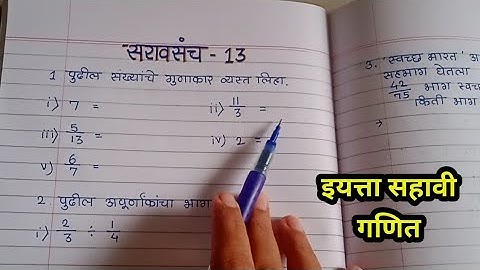 सरावसंच - 13
1 पुढील संख्यांचे गुणाकार व्यस्त लिहा.
i) 7 =
ii) 11/3 =
iii) 5/13 =
iv) 2 =
v) 6/7 =
2 पुढील अपूर्णांकांचा भाग
i) 2/3 ÷ 1/4
3. 'स्वच्छ भारत' अ
सहभाग घेतला
42/75 भाग स्वच
किती भाग
→
इयत्ता सहावी
गणित